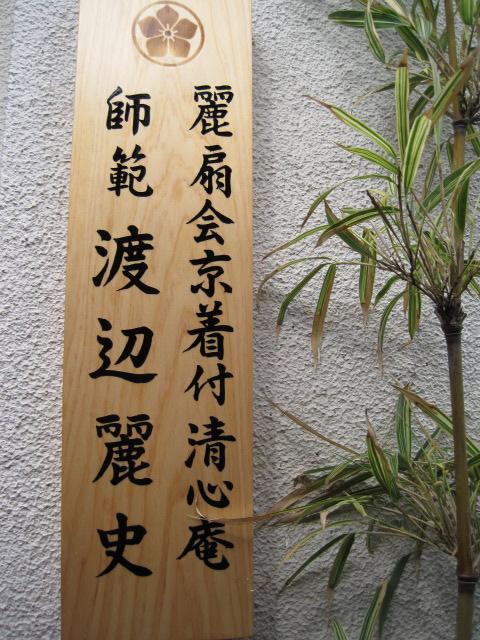 麗扇会京着付清心庵
師範 渡辺麗史